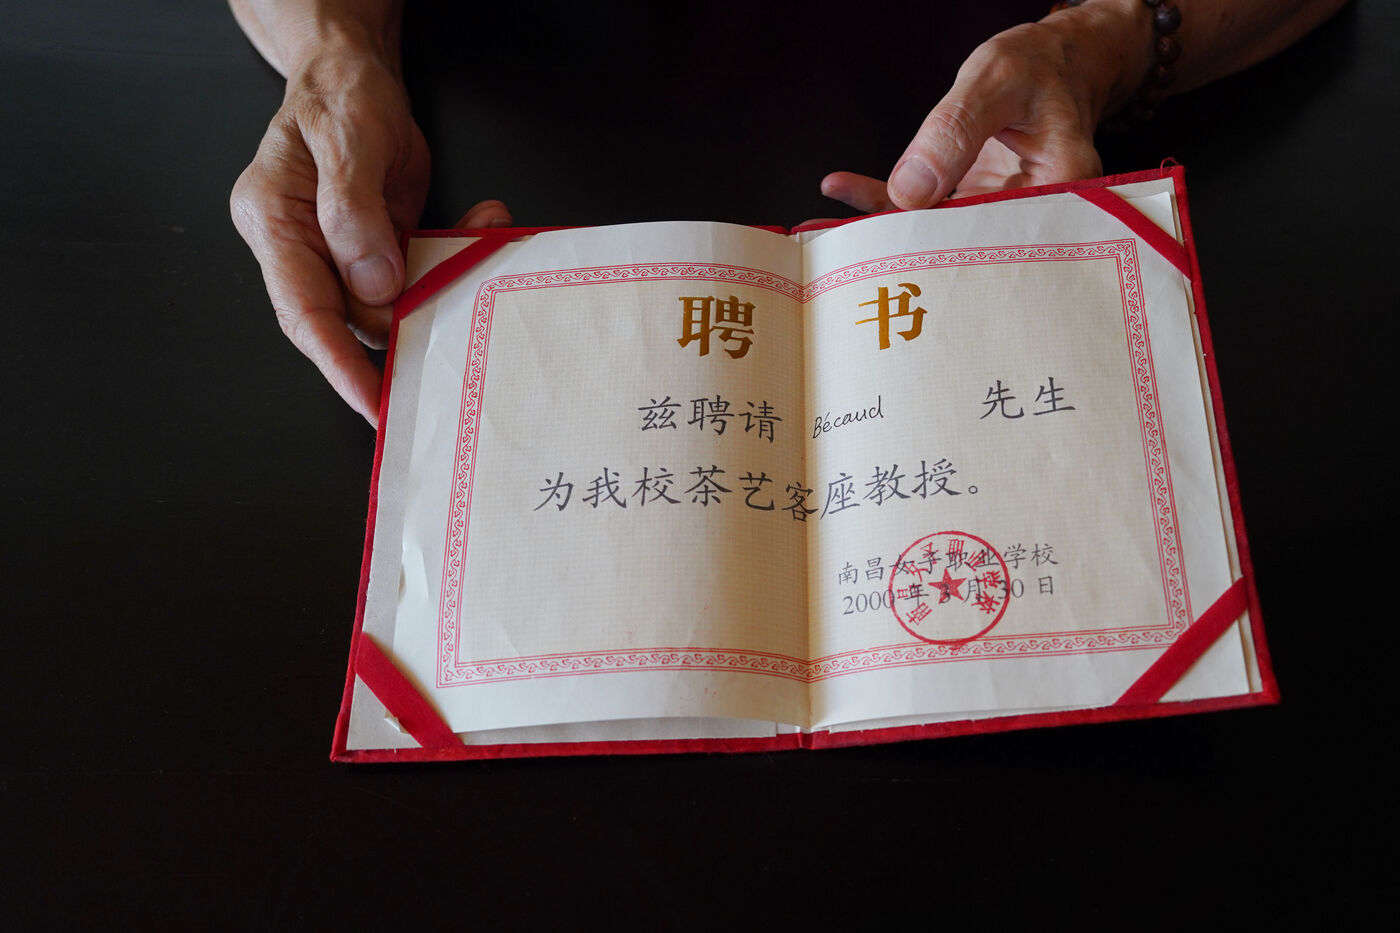 聘书
兹聘请 Bécaud 先生
为我校茶艺客座教授。
南昌女子职业学校
2000年3月30日